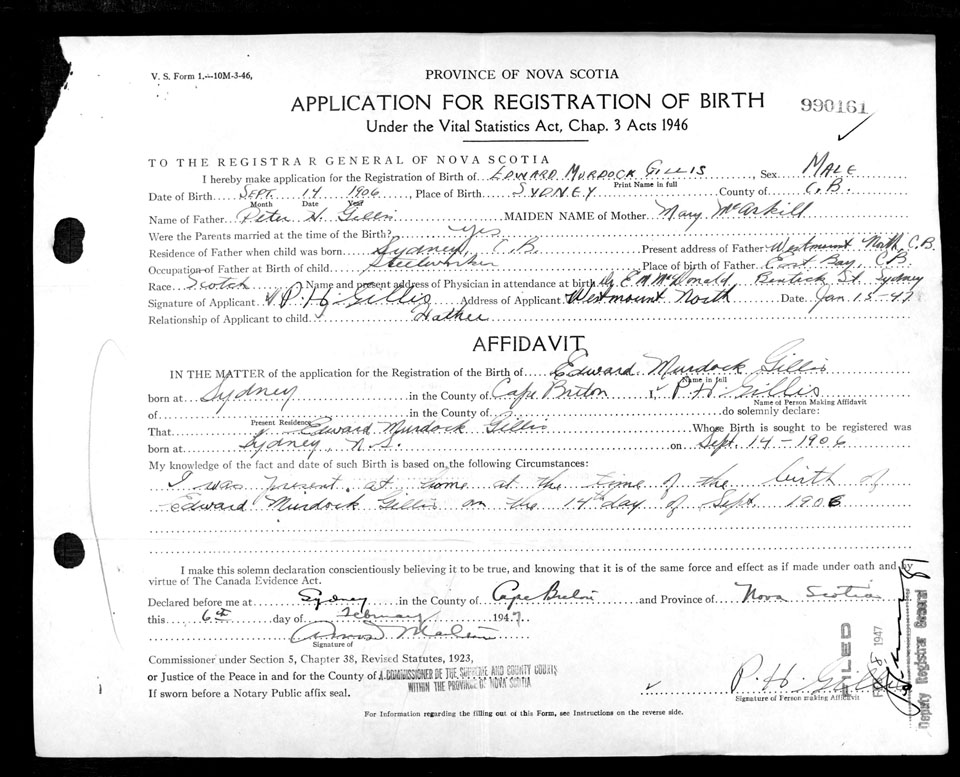 V. S. Form 1.—10M-3-46,
PROVINCE OF NOVA SCOTIA
APPLICATION FOR REGISTRATION OF BIRTH
990161
Under the Vital Statistics Act, Chap. 3 Acts 1946
TO THE REGISTRAR GENERAL OF NOVA SCOTIA
I hereby make application for the Registration of Birth of EDWARD MURDOCK GILLIS Sex MALE
Print Name in full
Date of Birth SEPT. 14 1906 Place of Birth SYDNEY County of C.B.
Month Date Year
Name of Father Peter H. Gillis MAIDEN NAME of Mother Mary McAskill
Were the Parents married at the time of the Birth? yes
Residence of Father when child was born Sydney, C.B. Present address of Father Westmount North, C.B.
Occupation of Father at Birth of child Steelworker Place of birth of Father East Bay, C.B.
Race Scotch Name and present address of Physician in attendance at birth Dr E M McDonald, Bentick St. Sydney
Signature of Applicant P. H Gillis Address of Applicant Westmount North Date Jan 15-47
Relationship of Applicant to child Father
AFFIDAVIT
IN THE MATTER of the application for the Registration of the Birth of Edward Murdock Gillis
Name in full
born at Sydney in the County of Cape Breton I, P H Gillis
Name of Person Making Affidavit
of in the County of do solemnly declare:
Present Residence
That Edward Murdock Gillis Whose Birth is sought to be registered was
born at Sydney, N.S. on Sept. 14-1906
My knowledge of the fact and date of such Birth is based on the following Circumstances:
I was present at home at the time of the birth of
Edward Murdock Gillis on the 14th day of Sept. 1906
I make this solemn declaration conscientiously believing it to be true, and knowing that it is of the same force and effect as if made under oath and by
virtue of The Canada Evidence Act.
Declared before me at Sydney in the County of Cape Breton and Province of Nova Scotia
this 6th day of February 1947.
Signature of
Commissioner under Section 5, Chapter 38, Revised Statutes, 1923,
or Justice of the Peace in and for the County of A COMMISSIONER OF THE SUPREME AND COUNTY COURTS
WITHIN THE PROVINCE OF NOVA SCOTIA
If sworn before a Notary Public affix seal.
P. H. Gillis
Signature of Person making Affidavit
FILED
8 1947
Deputy Registrar General
For Information regarding the filling out of this Form, see Instructions on the reverse side.